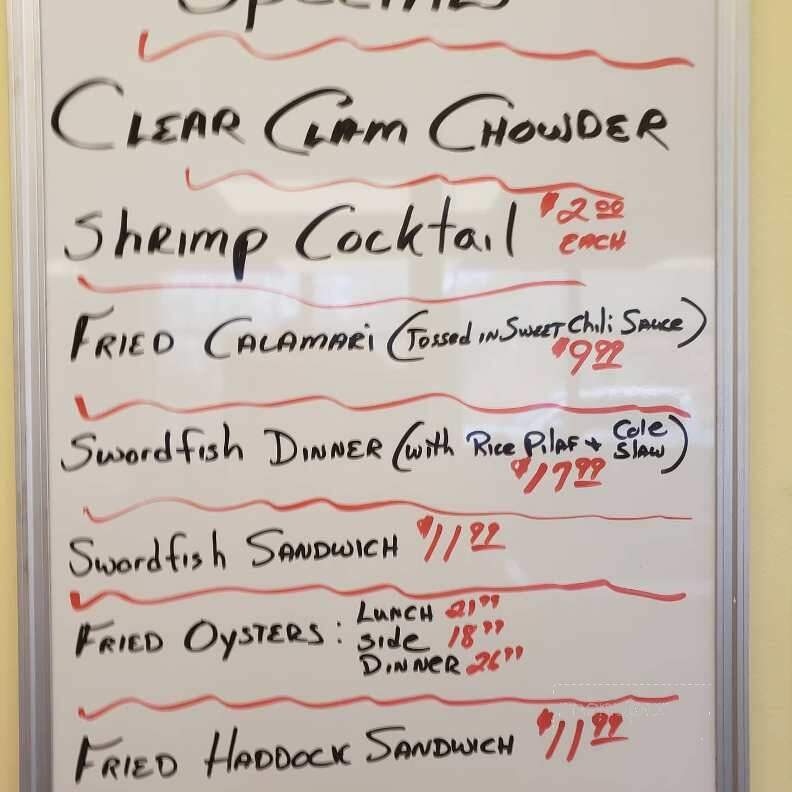 Specials
CLEAR CLAM CHOWDER
Shrimp Cocktail $2.00 EACH
FRIED CALAMARi (Tossed iN SWEET Chili SAUCE) $9.99
Swordfish DINNER (with Rice PilAF + Cole Slaw) $17.99
Swordfish SANDWICH $11.99
FRIED OYSTERS: LUNCH 21.99
side 18.99
DINNER 26.99
FRIED HADDOCK SANDWICH $11.99